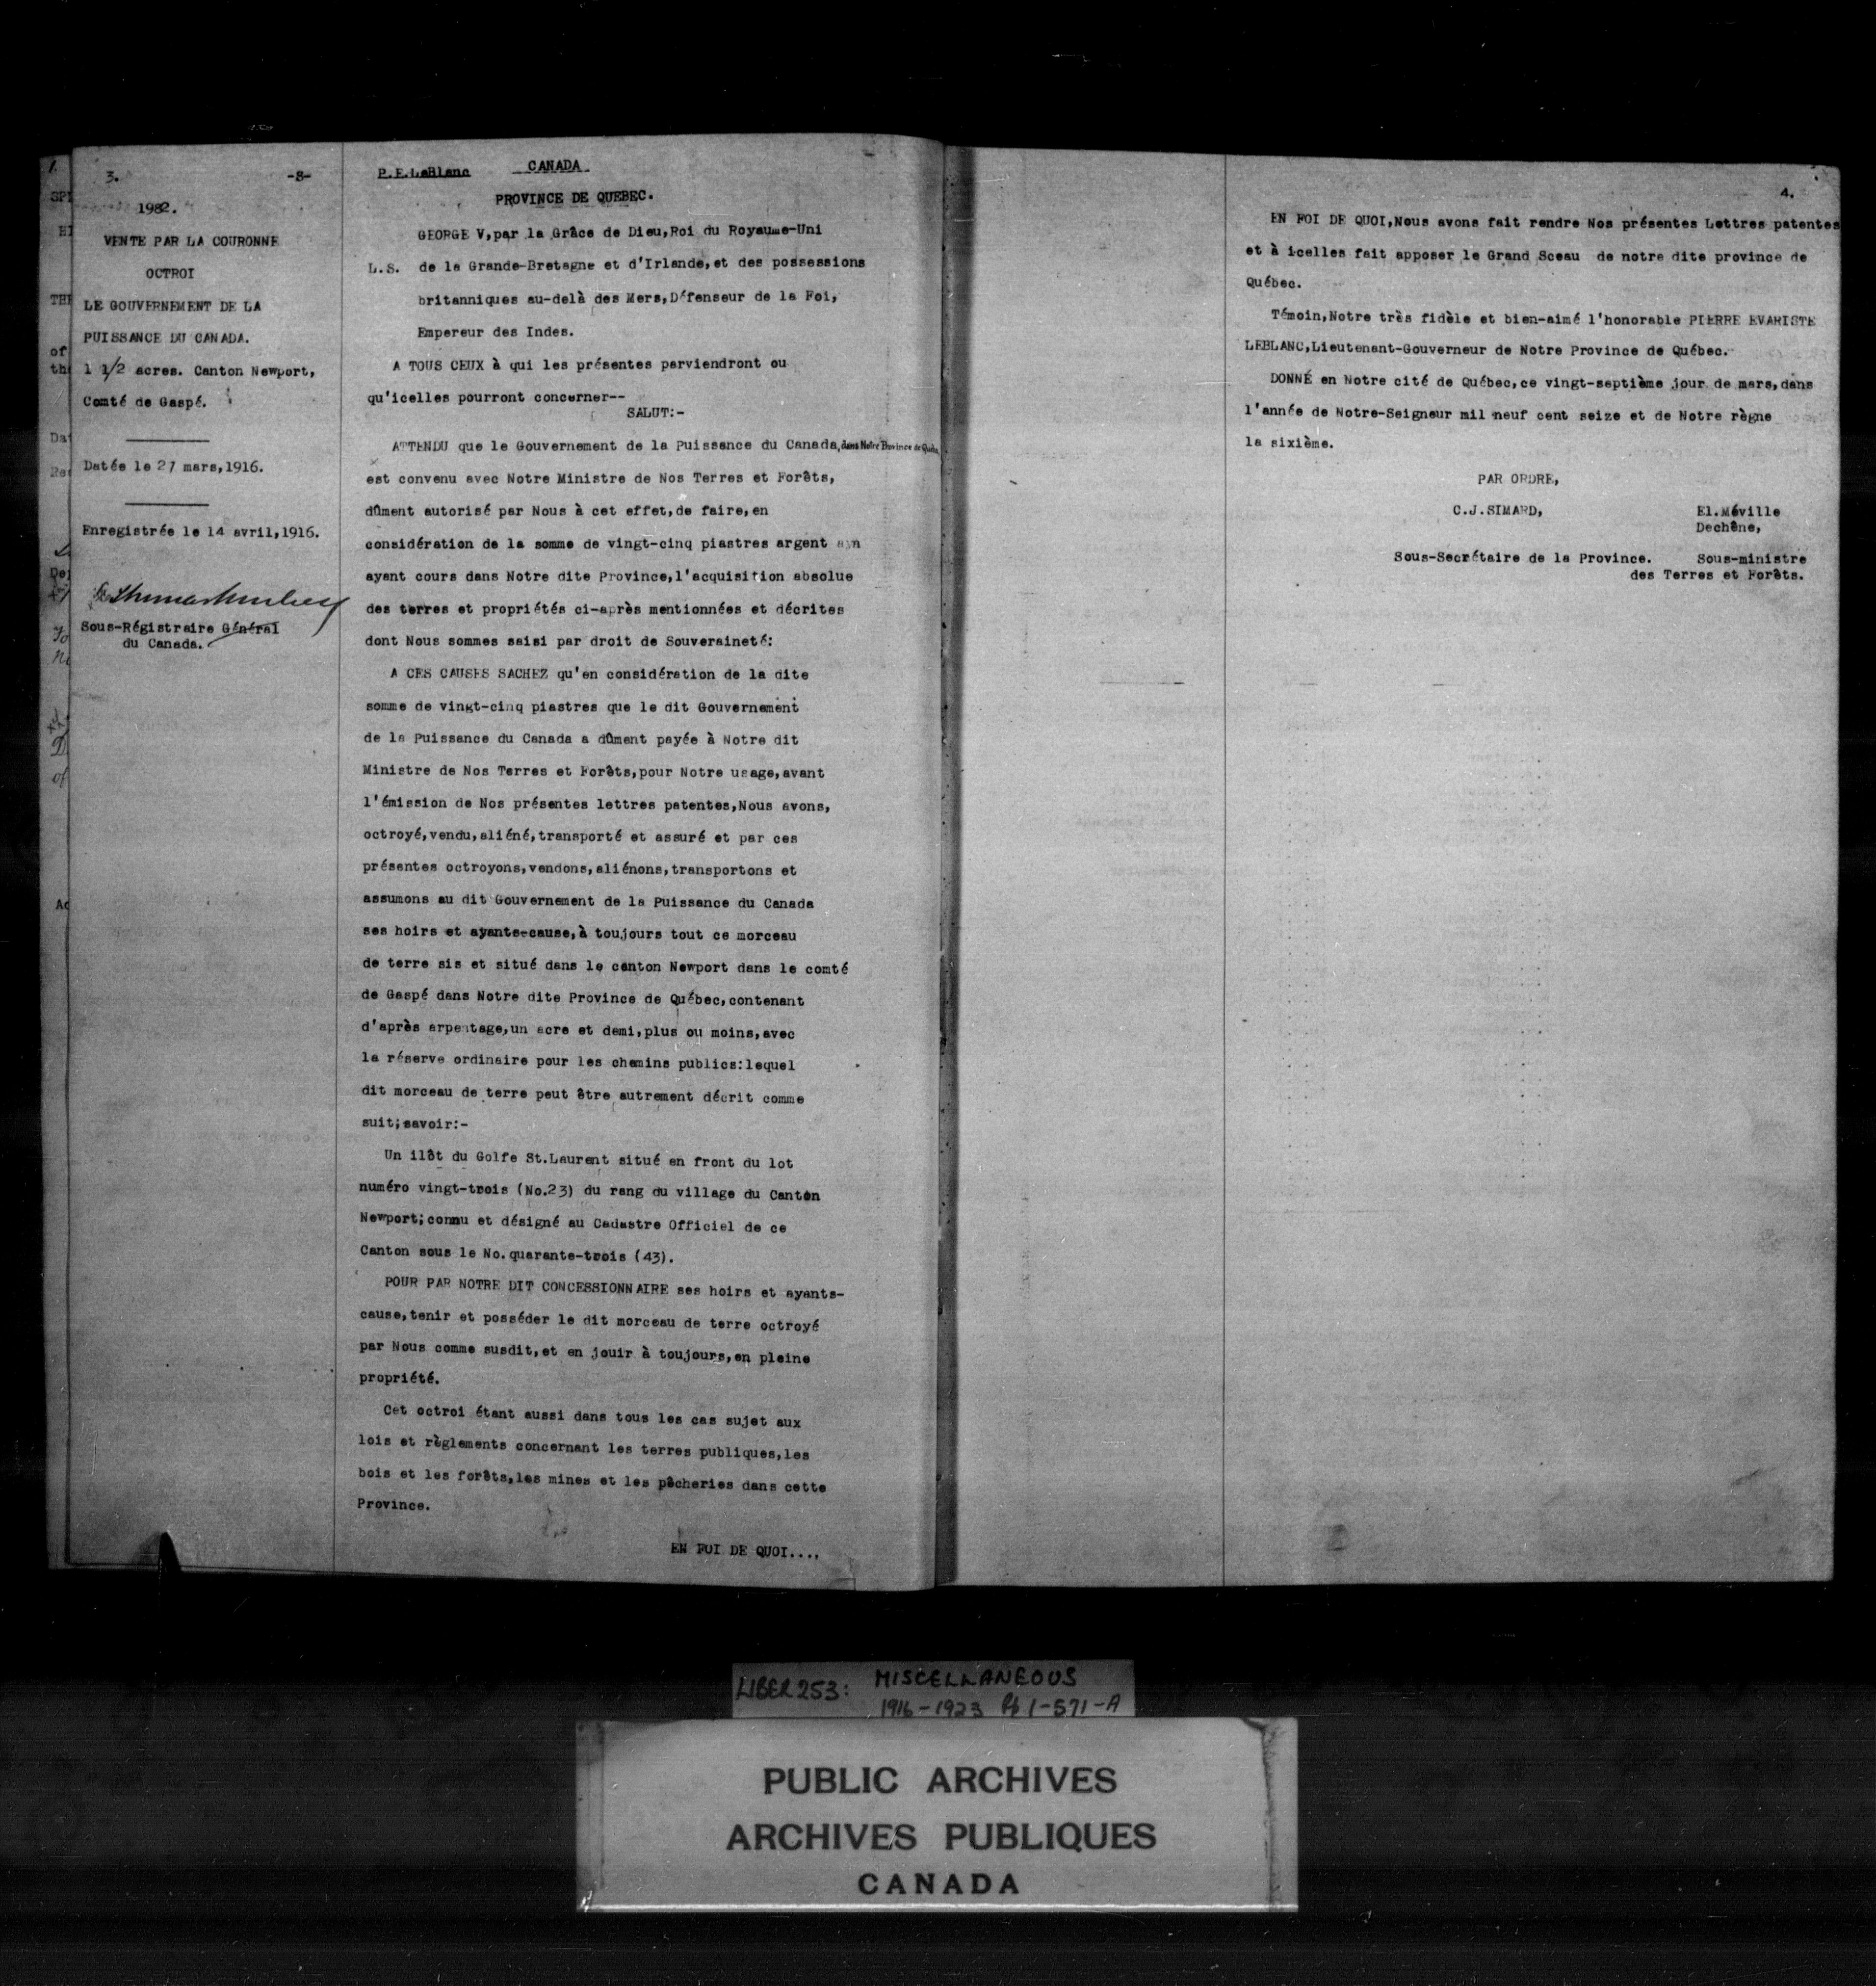 3. -8-
1982.
VENTE PAR LA COURONNE
OCTROI
LE GOUVERNEMENT DE LA
PUISSANCE DU CANADA.
1 1/2 acres. Canton Newport,
Comté de Gaspé.
Datée le 27 mars,1916.
Enregistrée le 14 avril,1916.
Sous-Régistraire Général
du Canada.
P.E.LeBlanc CANADA
PROVINCE DE QUEBEC.
GEORGE V,par la Grâce de Dieu,Roi du Royaume-Uni
L.S. de la Grande-Bretagne et d'Irlande,et des possessions
britanniques au-delà des Mers,Défenseur de la Foi,
Empereur des Indes.
A TOUS CEUX à qui les présentes parviendront ou
qu'icelles pourront concerner--
SALUT:-
ATTENDU que le Gouvernement de la Puissance du Canada,dans Notre Province de Québec,
est convenu avec Notre Ministre de Nos Terres et Forêts,
dûment autorisé par Nous à cet effet,de faire,en
considération de la somme de vingt-cinq piastres argent ayn
ayant cours dans Notre dite Province,l'acquisition absolue
des terres et propriétés ci-après mentionnées et décrites
dont Nous sommes saisi par droit de Souveraineté:
A CES CAUSES SACHEZ qu'en considération de la dite
somme de vingt-cinq piastres que le dit Gouvernement
de la Puissance du Canada a dûment payée à Notre dit
Ministre de Nos Terres et Forêts,pour Notre usage,avant
l'émission de Nos présentes lettres patentes,Nous avons,
octroyé,vendu,aliéné,transporté et assuré et par ces
présentes octroyons,vendons,aliénons,transportons et
assumons au dit Gouvernement de la Puissance du Canada
ses hoirs et ayants-cause,à toujours tout ce morceau
de terre sis et situé dans le canton Newport dans le comté
de Gaspé dans Notre dite Province de Québec,contenant
d'après arpentage,un acre et demi,plus ou moins,avec
la réserve ordinaire pour les chemins publics:lequel
dit morceau de terre peut être autrement décrit comme
suit;savoir:-
Un ilôt du Golfe St.Laurent situé en front du lot
numéro vingt-trois (No.23) du rang du village du Canton
Newport;connu et désigné au Cadastre Officiel de ce
Canton sous le No.quarante-trois (43).
POUR PAR NOTRE DIT CONCESSIONNAIRE ses hoirs et ayants-
cause,tenir et posséder le dit morceau de terre octroyé
par Nous comme susdit,et en jouir à toujours,en pleine
propriété.
Cet octroi étant aussi dans tous les cas sujet aux
lois et règlements concernant les terres publiques,les
bois et les forêts,les mines et les pêcheries dans cette
Province.
EN FOI DE QUOI....
4.
EN FOI DE QUOI,Nous avons fait rendre Nos présentes Lettres patentes
et à icelles fait apposer le Grand Sceau de notre dite province de
Québec.
Témoin,Notre très fidèle et bien-aimé l'honorable PIERRE EVARISTE
LEBLANC,Lieutenant-Gouverneur de Notre Province de Québec.
DONNÉ en Notre cité de Québec,ce vingt-septième jour de mars,dans
l'année de Notre-Seigneur mil neuf cent seize et de Notre règne
la sixième.
PAR ORDRE,
C.J.SIMARD, El.Méville
Dechêne,
Sous-Secrétaire de la Province. Sous-ministre
des Terres et Forêts.
LIBER 253: MISCELLANEOUS
1916-1923 Pp 1-571-A
PUBLIC ARCHIVES
ARCHIVES PUBLIQUES
CANADA